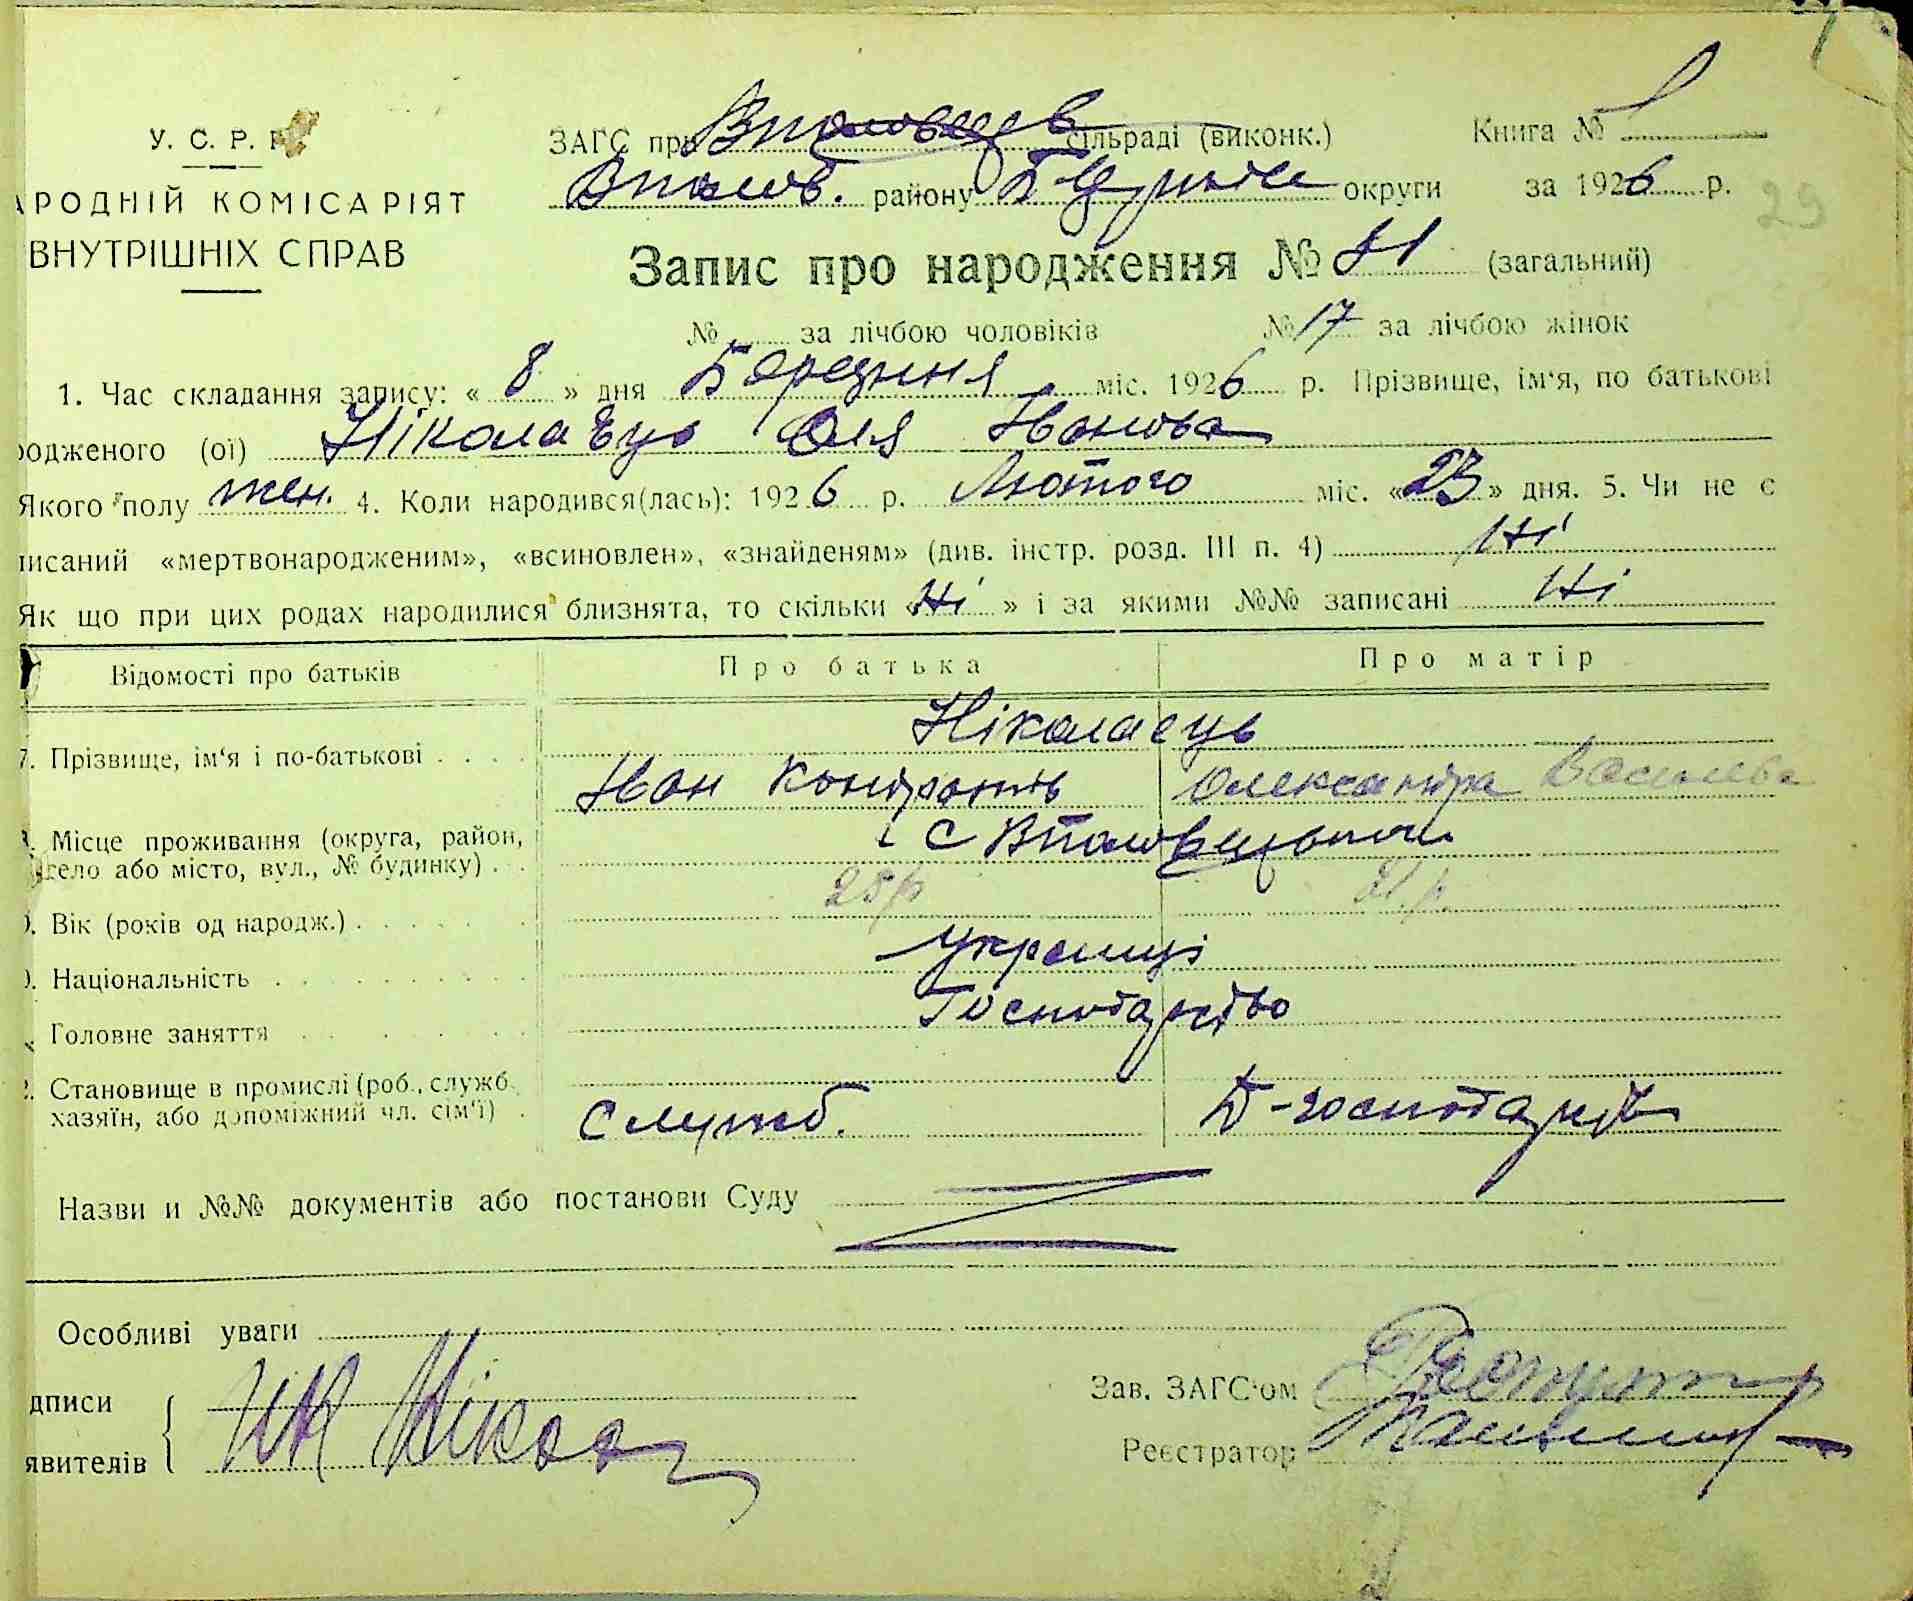 У. С. Р. Р.
АРОДНІЙ КОМІСАРІЯТ
ВНУТРІШНІХ СПРАВ
ЗАГС при сільраді (виконк.) Книга №
району округи за 1926 р.
29
Запис про народження № (загальний)
№ за лічбою чоловіків № 17 за лічбою жінок
1. Час складання запису: « 8 » дня Березння міс. 1926 р. Прізвище, ім'я, по батькові
родженого (ої) Ніколаєць Оля Іванова
Якого полу жен. 4. Коли народився(лась): 1926 р. Лютого міс. «23» дня. 5. Чи не є
писаний «мертвонародженим», «всиновлен», «знайденям» (див. інстр. розд. III п. 4) Ні
Як що при цих родах народилися близнята, то скільки «Ні» і за якими №№ записані Ні
Відомості про батьків Про батька Про матір
7. Прізвище, ім'я і по-батькові Ніколаєць
Іван Кондратів Олександра Васильева
Місце проживання (округа, район,
село або місто, вул., № будинку) с
Вік (років од народж.) 25 р 21 р.
Національність Українці
Головне заняття Господарство
Становище в промислі (роб., служб.
хазяїн, або допоміжний чл. сім'ї) Служб. Д-господарств
Назви и №№ документів або постанови Суду
Особливі уваги
дписи Зав. ЗАГС'ом
явителів ИК Нікола Реєстратор